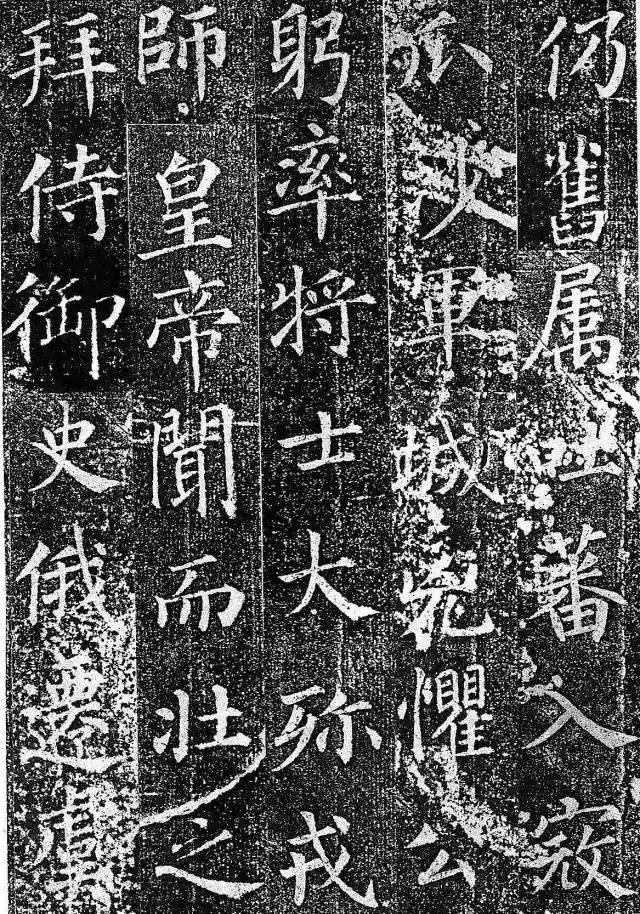 仍舊属吐蕃入寇
瓜沙軍城兇懼公
躬率将士大殄戎
師皇帝聞而壮之
拜侍御史俄遷虞